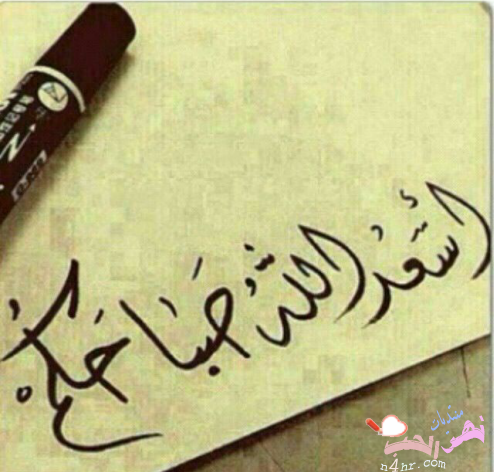 اسعد الله صباحكم
منتديات
نهر الحب
n4hr.com